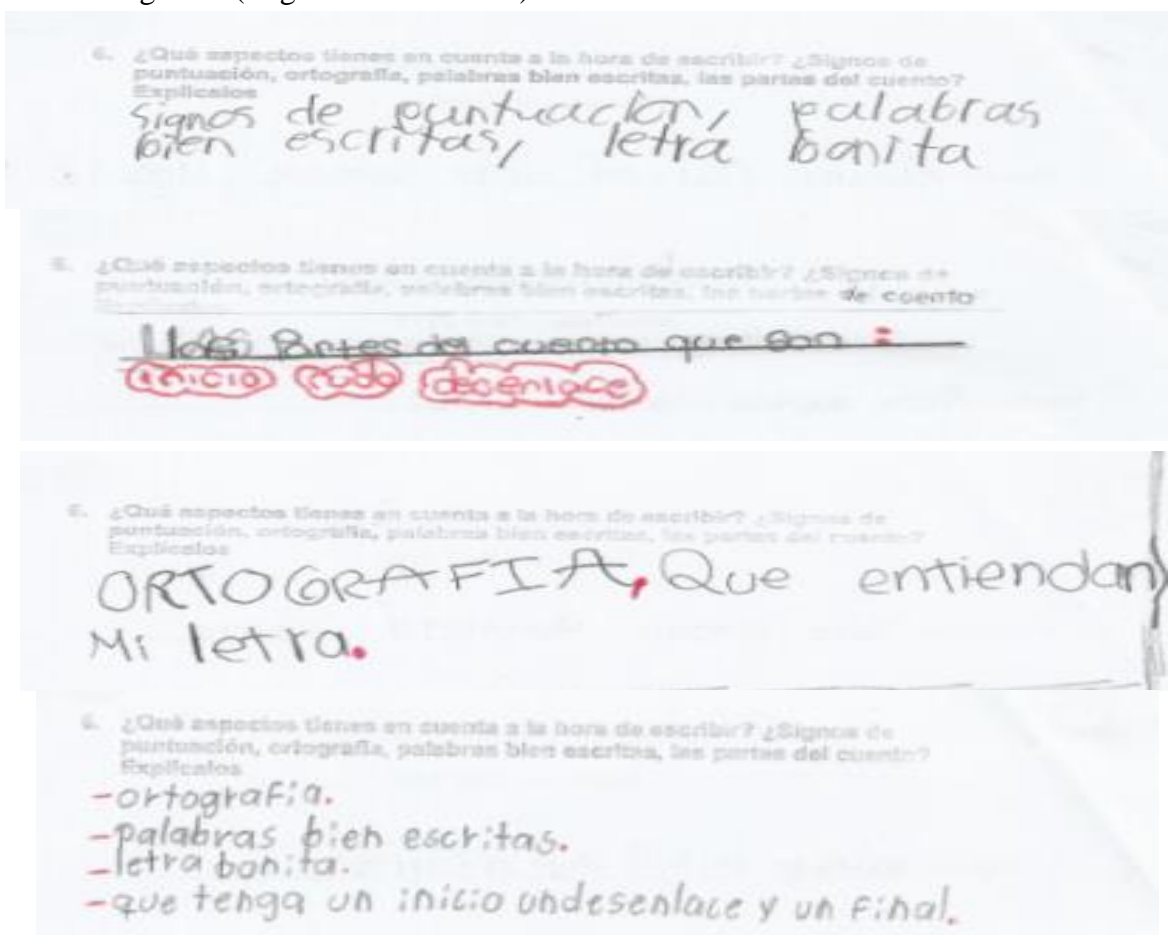 6. ¿Qué aspectos tienes en cuenta a la hora de escribir? ¿Signos de
puntuación, ortografía, palabras bien escritas, las partes del cuento?
Explícalos
signos de puntuacion, palabras
bien escritas, letra bonita
6. ¿Qué aspectos tienes en cuenta a la hora de escribir? ¿Signos de
puntuación, ortografía, palabras bien escritas, las partes de cuento
las Partes del cuento que son :
inicio nudo decenlace
6. ¿Qué aspectos tienes en cuenta a la hora de escribir? ¿Signos de
puntuación, ortografía, palabras bien escritas, las partes del cuento?
Explícalos
ORTOGRAFIA, Que entiendan
Mi letra.
6. ¿Qué aspectos tienes en cuenta a la hora de escribir? ¿Signos de
puntuación, ortografía, palabras bien escritas, las partes del cuento?
Explícalos
-ortografía.
-palabras bien escritas.
-letra bonita.
-que tenga un inicio undesenlace y un final.